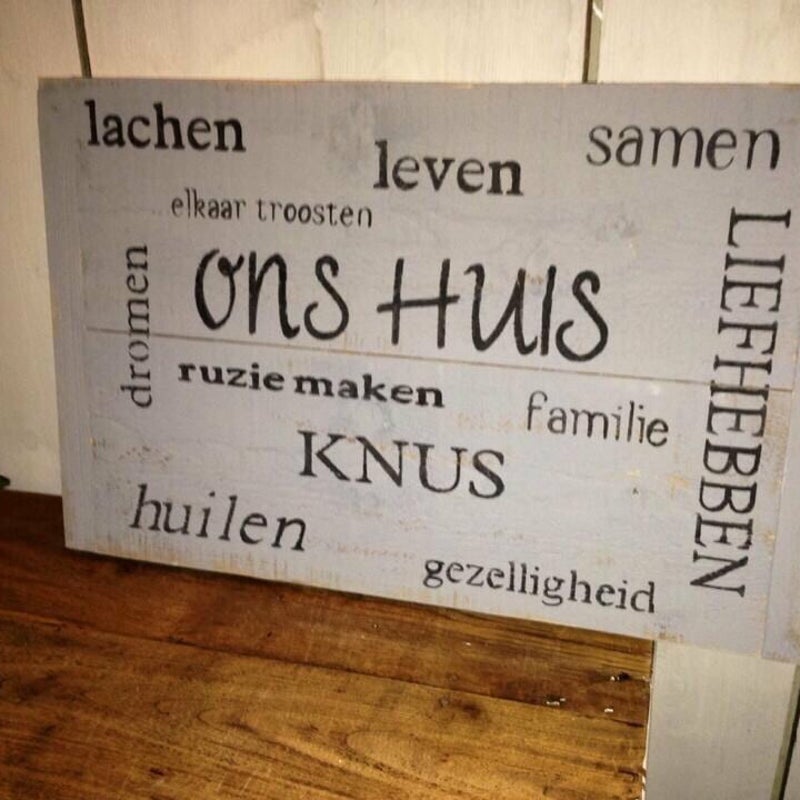 lachen
leven
samen
elkaar troosten
dromen
ons Huis
LIEFHEBBEN
ruzie maken
familie
KNUS
huilen
gezelligheid